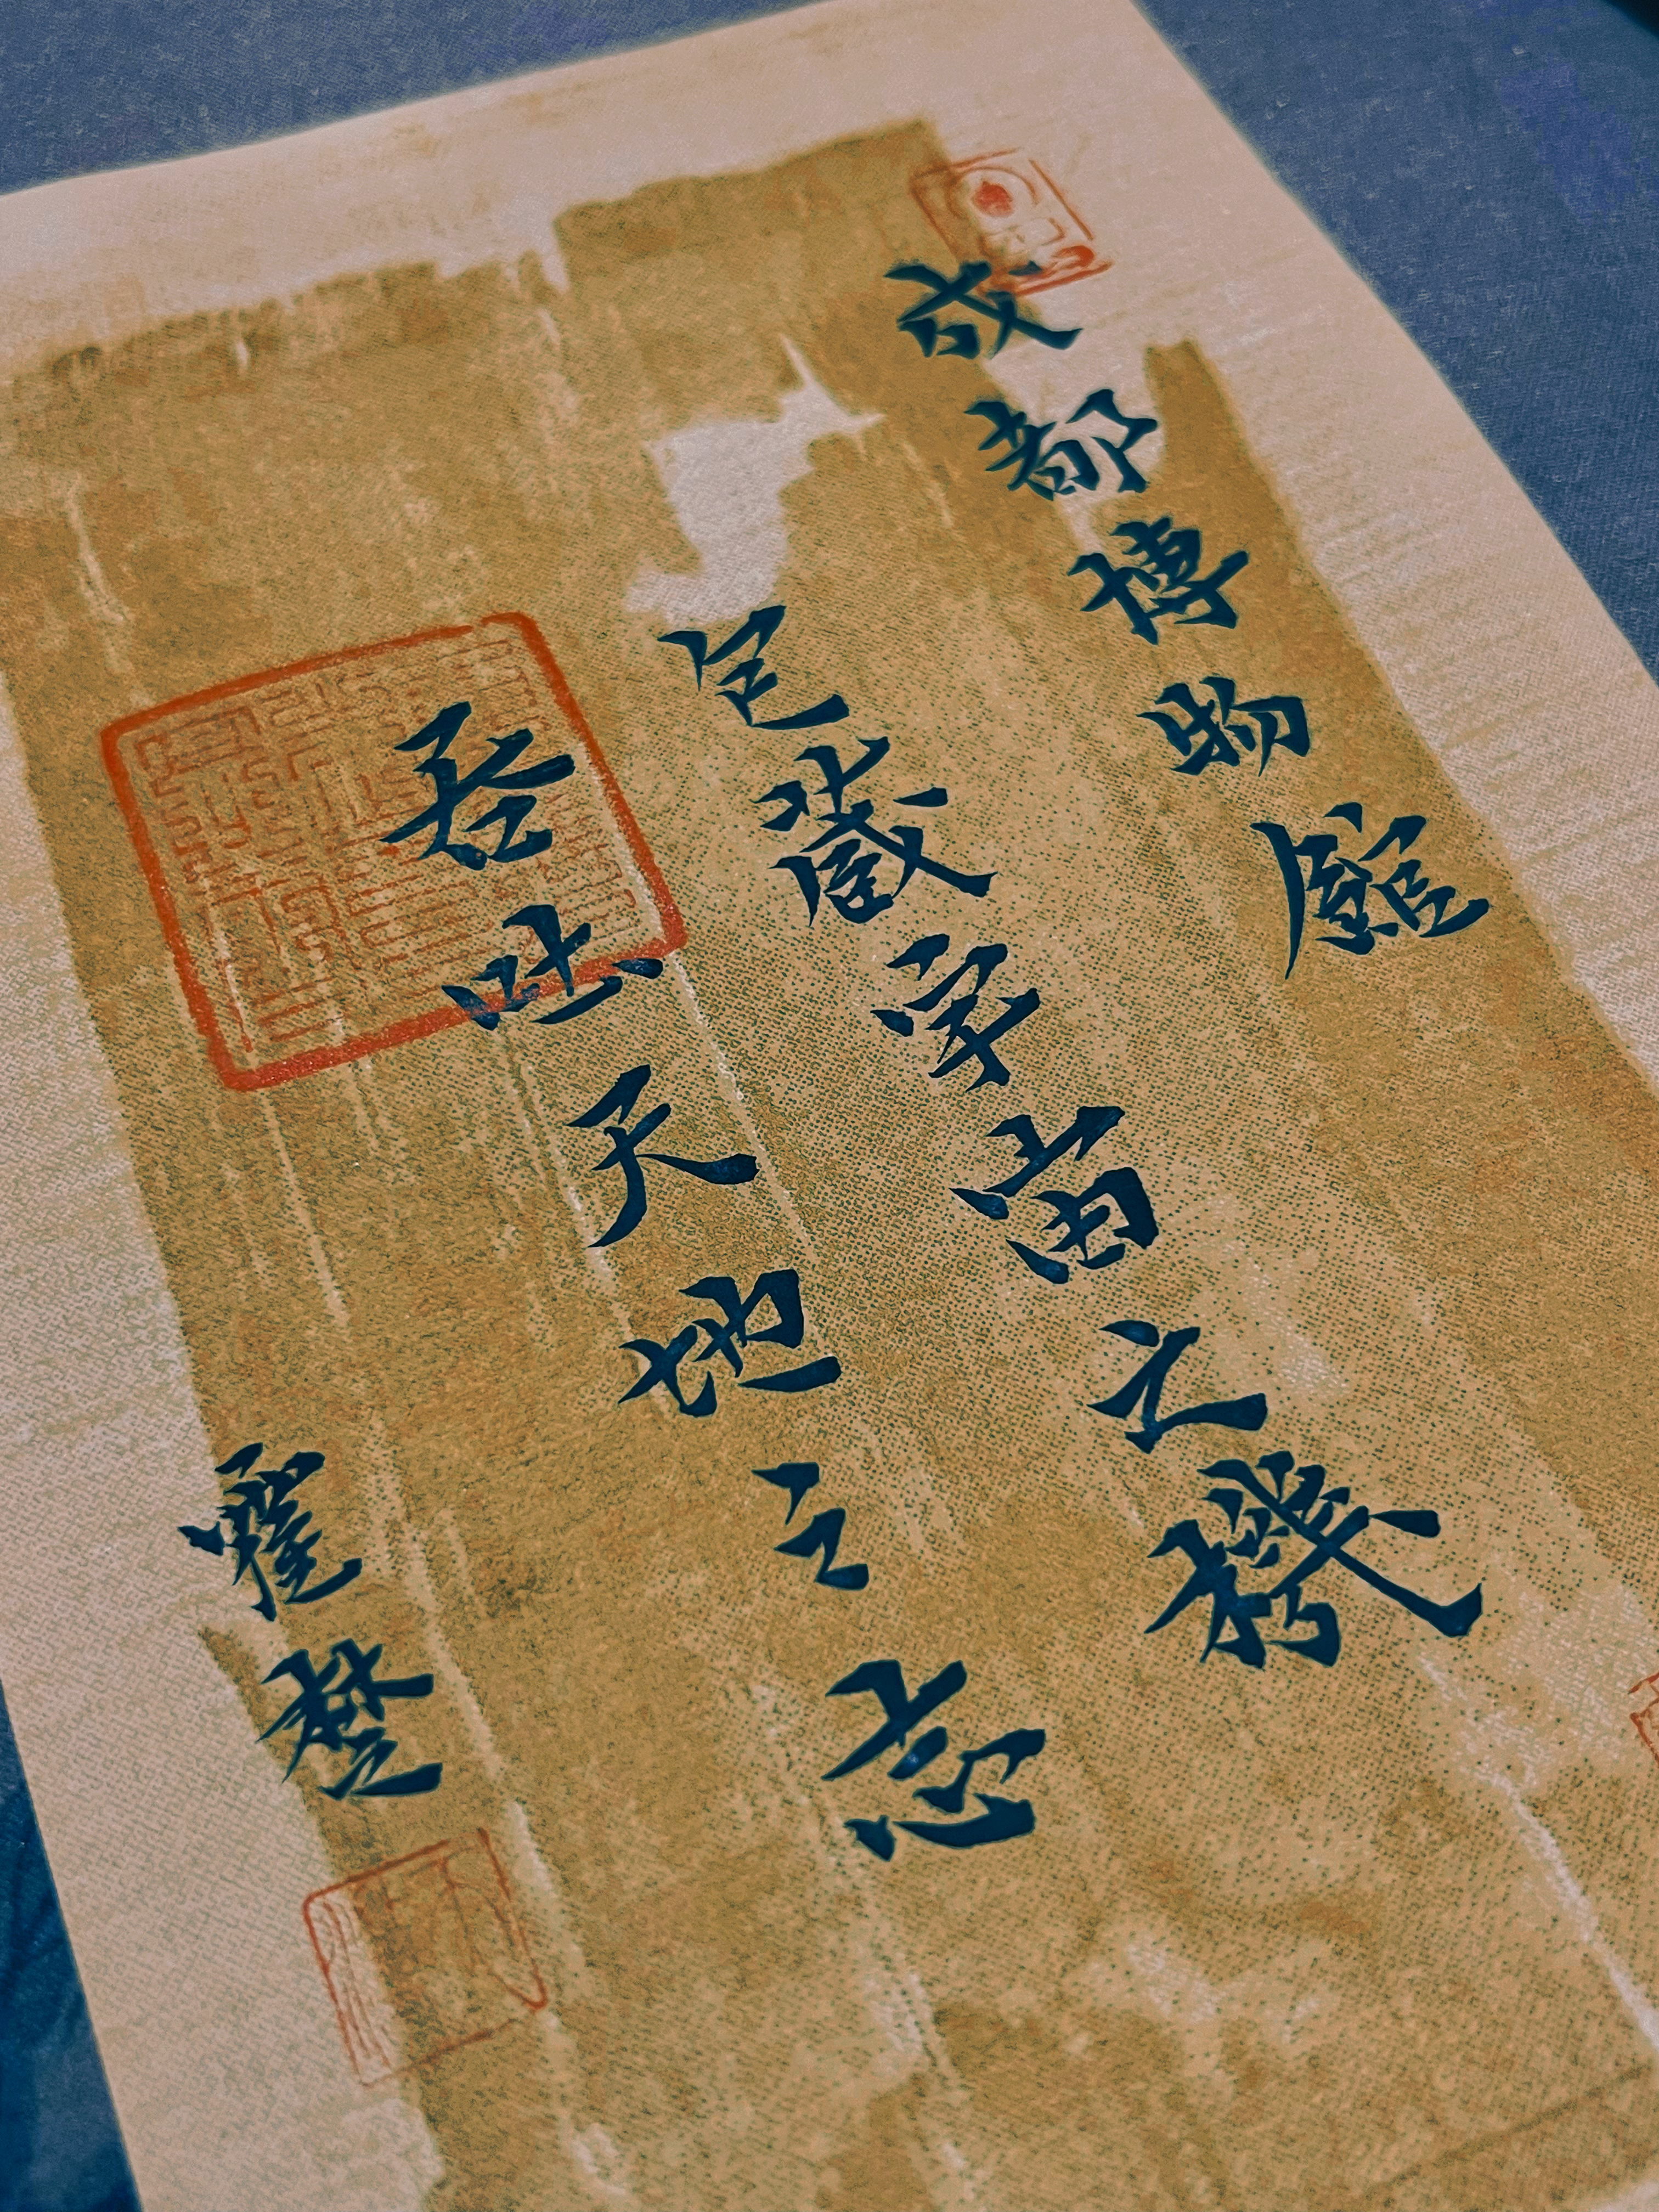 成都博物館
包藏宇宙之機
吞吐天地之志
霍楚